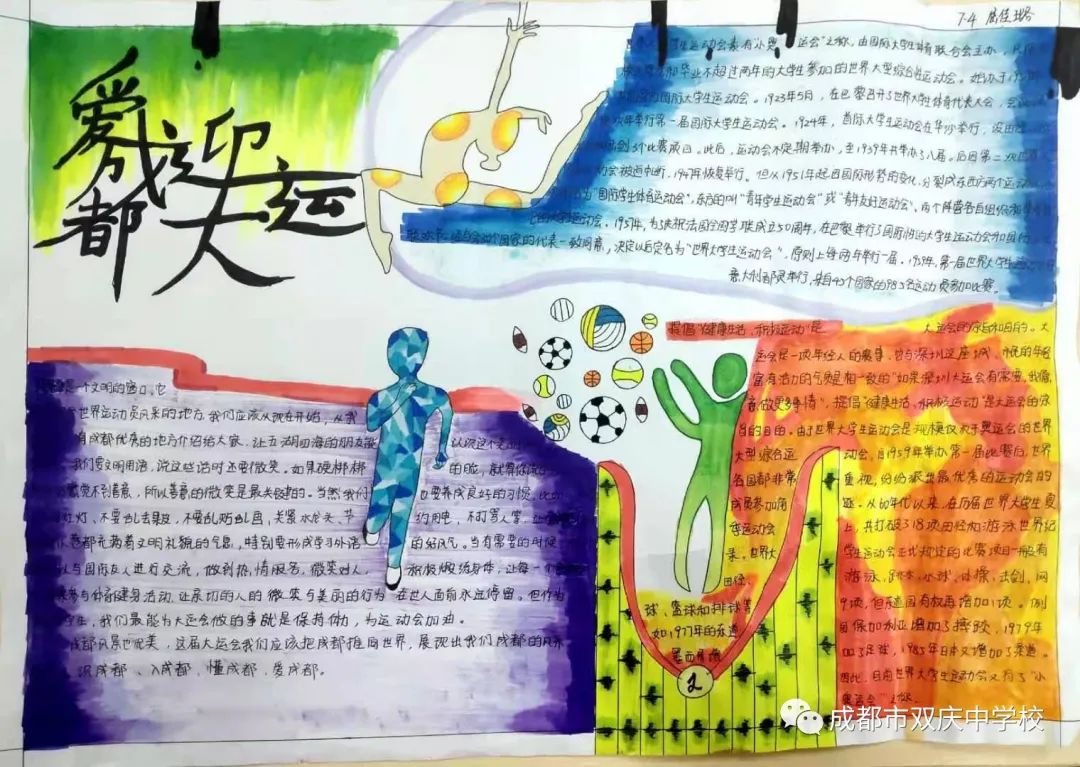 7.4
爱成都
迎大运
学生运动会素有"小奥运会"之称,由国际大学生体育联合会主办,只限
校大学生和毕业不超过两年的大学生参加的世界大型综合性运动会。始办于
国际大学生运动会。1923年5月,在巴黎召开了世界大学生体育代表大会,会议
次年举行第一届国际大学生运动会。1924年,首际大学生运动会在华沙举行,设田径
到3个比赛项目,此后,运动会不定期举办,至1939年共举办了八届。后因第二次世界
会被迫中断,1947年恢复举行。但从1951年起因国际形势的变化,分裂成东西方两个运动
为"国际学生体育运动会",东方的叫"青年学生运动会"或"青年友好运动会",两个阵营各自组
运动会。1957年,为了庆祝法国全国学联成立50周年,在巴黎举行了国际性的大学生运动会和国际
国家的代表一致同意,决定以后定名为"世界大学生运动会",原则上每两年举行一届。1959年,第一届世界大学生运动会
意大利都灵举行,来自43个国家的983名运动员参加比赛。
是一个文明的窗口,它
世界运动员风采的地方,我们应该从现在开始,从我
有成都优秀的地方介绍给大家,让五湖四海的朋友能 认识这个
我们要文明用语,说这些话时还要微笑。如果硬梆梆 的脸,就算你
感觉不到善意,所以善意的微笑是最关键的。当然我们 也要养成良好的习惯,比如
红灯、不要乱丢果皮,不要乱贴乱画,关紧水龙头、节 约用电,不打骂人等,让
都充满着文明礼貌的气息,特别要形成学习外语 的好风气。当有需要的时候
与国际友人进行交流,做到热情服务,微笑对人, 积极锻炼身体,让每一个
参与体育健身活动,让亲切的人的微笑与美丽的行为在世人面前永远停留。但作为
学生,我们最能为大运会做的事就是保持体力,为运动会加油。
成都风景也优美,这届大运会我们应该把成都推向世界,展现出我们成都的风采
识成都、入成都、懂成都、爱成都。
提倡"健康生活,积极运动"是 大运会的宗旨和目的。大
运会是一项年轻人的赛事,它与深圳这座城市的年轻
富有活力的气质是相一致的"如果深圳大运会有需要,我愿
意做更多事情",提倡"健康生活,积极运动"是大运会的宗
旨的目的。由于世界大学生运动会是规模仅次于奥运会的世界
大型综合运 动会,自1959年举办第一届比赛后,世界
各国都非常 重视,纷纷派出最优秀的运动会的
成员参加角 逐。从60年代以来,在历届世界大学生夏
季运动会 上,共打破318项田径和游泳世界纪
录。世界大 学生运动会正式规定的比赛项目一般有
田径、 游泳、跳水、水球、体操、击剑、网
球、篮球和排球等 9项,但东道国有权再增加1项。例
如1977年的东道 国保加利亚增加了摔跤,1979年
墨西哥增 加了足球,1985年日本又增加了柔道。
因此,目前世界大学生运动会又有了"小
奥运会"之称。
2
成都市双庆中学校